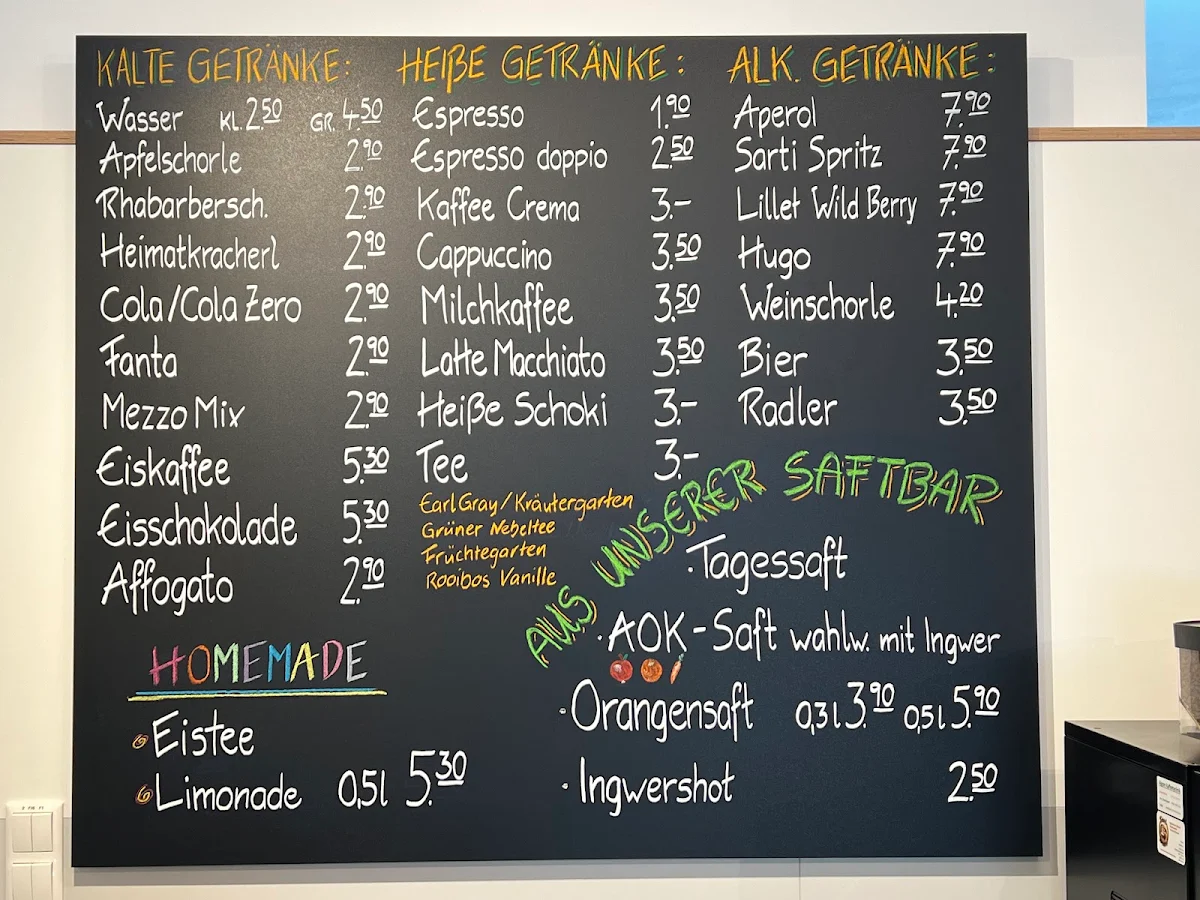 KALTE GETRÄNKE:
Wasser KL. 2.50 GR. 4.50
Apfelschorle 2.90
Rhabarbersch. 2.90
Heimatkracherl 2.90
Cola/Cola Zero 2.90
Fanta 2.90
Mezzo Mix 2.90
Eiskaffee 5.30
Eisschokolade 5.30
Affogato 2.90
HOMEMADE
Eistee
Limonade 0,5l 5.30
HEIßE GETRÄNKE:
Espresso 1.90
Espresso doppio 2.50
Kaffee Crema 3.-
Cappuccino 3.50
Milchkaffee 3.50
Latte Macchiato 3.50
Heiße Schoki 3.-
Tee 3.-
Earl Gray/Kräutergarten
Grüner Nebeltee
Früchtegarten
Rooibos Vanille
ALK. GETRÄNKE:
Aperol 7.90
Sarti Spritz 7.90
Lillet Wild Berry 7.90
Hugo 7.90
Weinschorle 4.20
Bier 3.50
Radler 3.50
AUS UNSERER SAFTBAR
· Tagessaft
· AOK-Saft wahlw. mit Ingwer
· Orangensaft 0,3l 3.90 0,5l 5.90
· Ingwershot 2.50